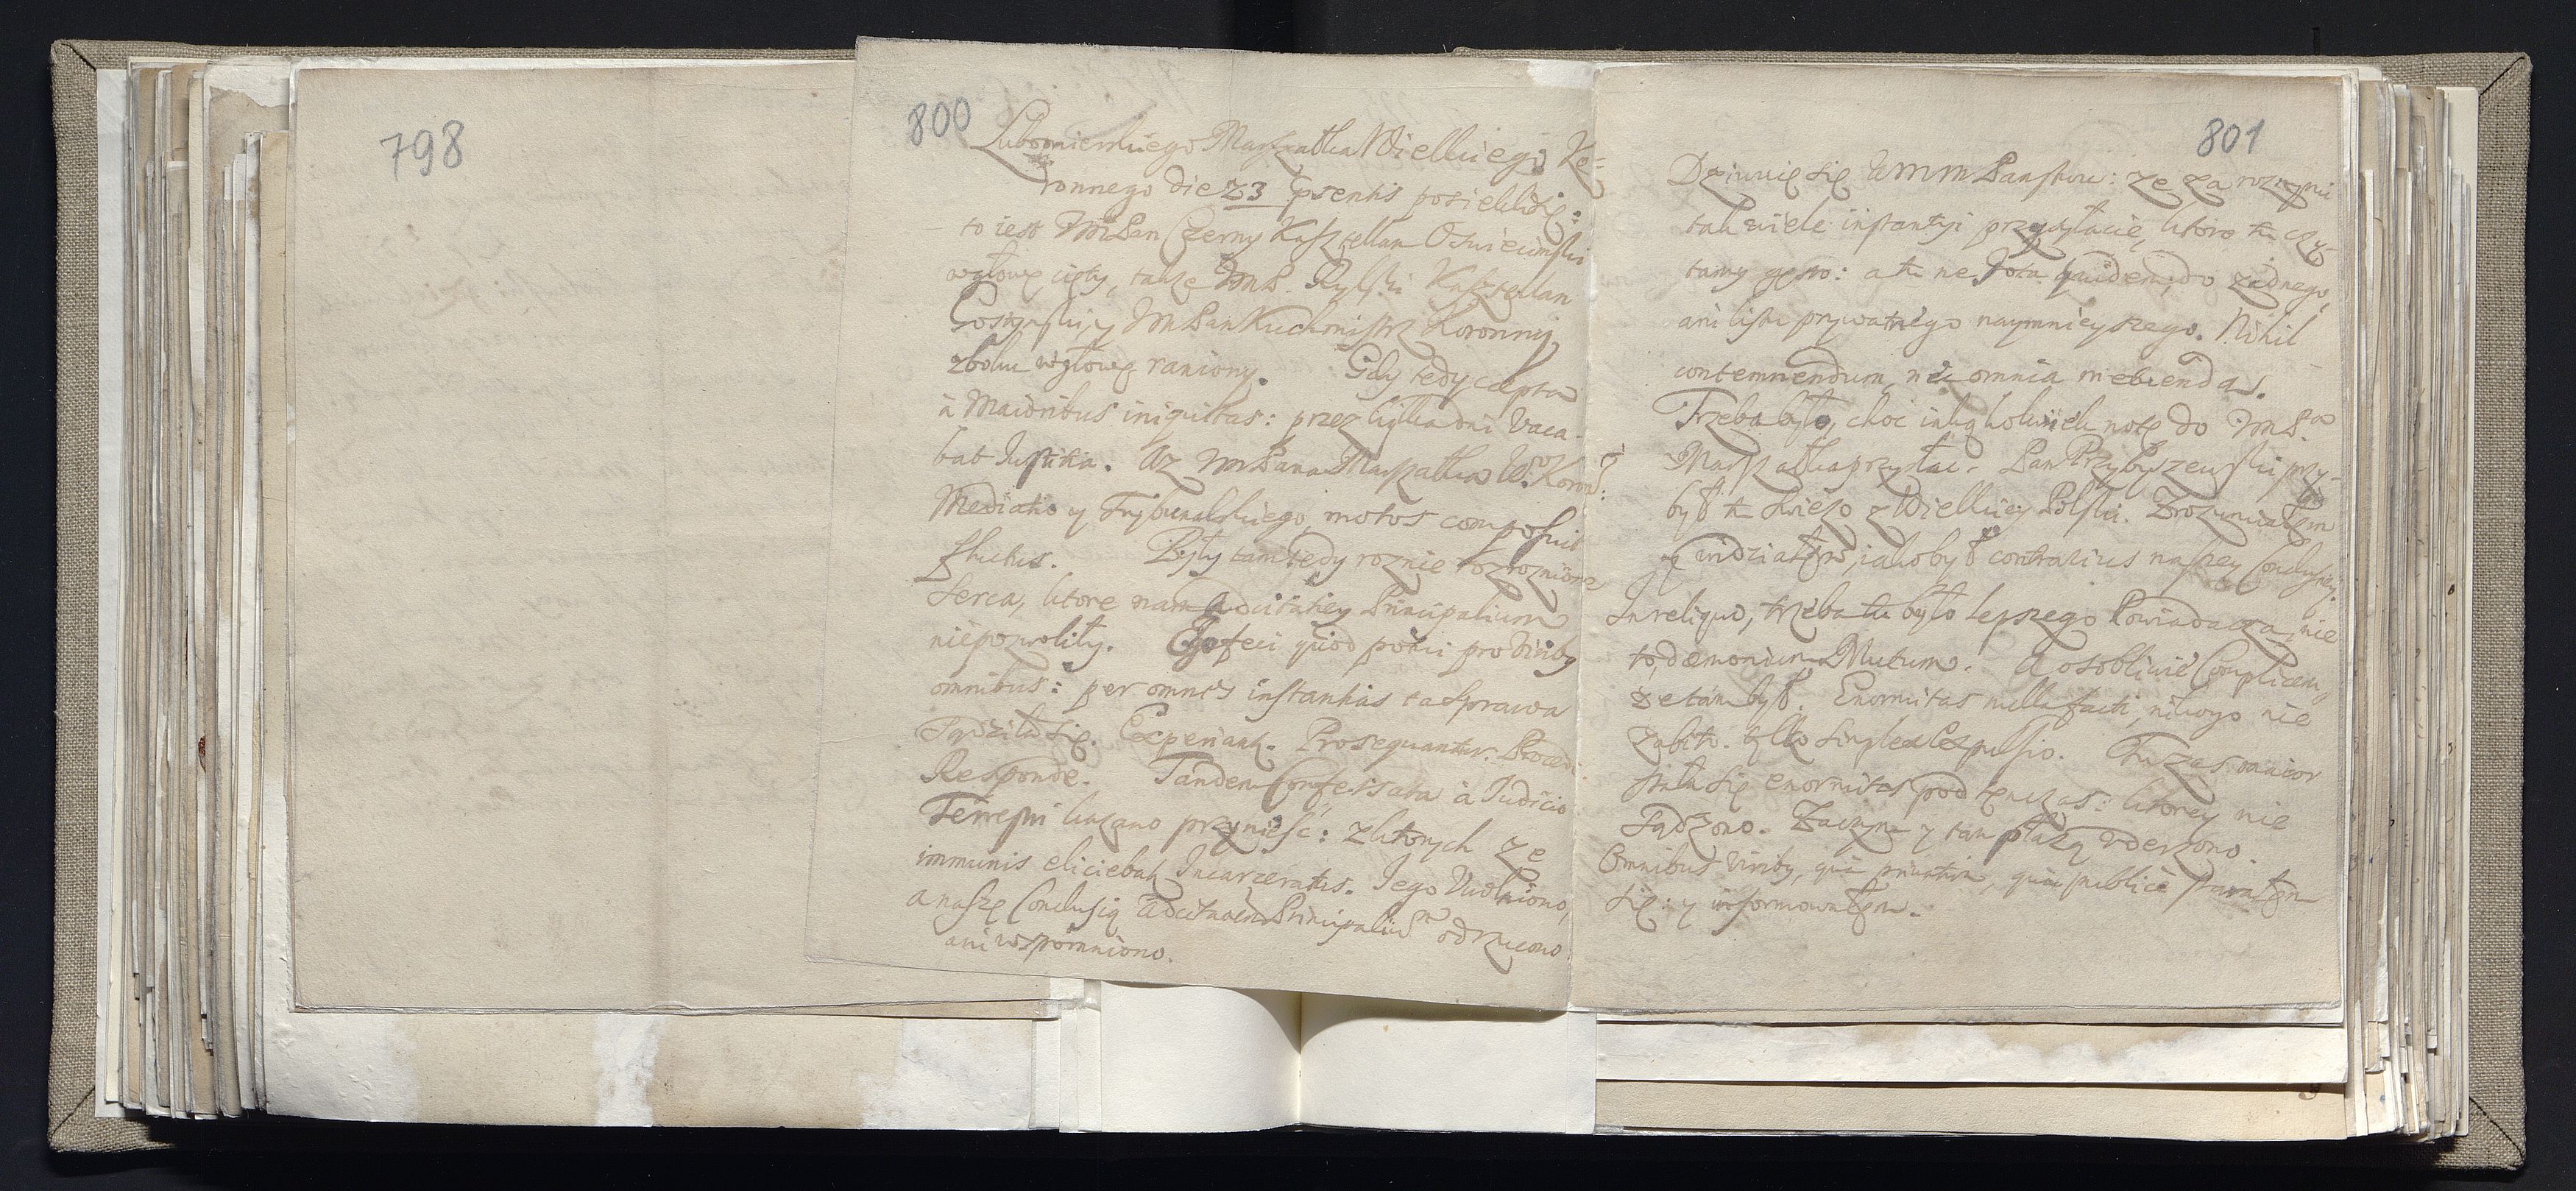 798
800
Lubomierskiego Marszałka Wielkiego Ko-
ronnego die 23 psentis posiekli się:
to iest ImPan Czerny Kasztellan Oswiecimski
wgłowę cięty, także ImP. Rylski Kasztellan
Gostynski, y ImPan Kuchmistrz Koronny
zboku wgłowę raniony. Gdy tedy cæpta
à Maioribus iniquitas: przez kilka dni vaca-
bat Justitia. Az ImPana Marszałka W. Koron:
Mediatio y Trybunalskiego, motos composuit
fluctus. Były tam tedy roznie rozroznione
Serca, ktore nam Adcitatiey Principalium
niepozwoliły. Ego feci quod potui pro viriby
omnibus: per omnes instantias ta Sprawa
Sądziła się. Experiant. Prosequantur. Procedi.
Responde. Tandem Confessata à Judicio
Terrestri kazano przynieść: zktorych ze
immunis eliciebat Incarceratus. Jego Vwolniono,
a naszę Conclusią Adcitatien Principaliu odrzucono
ani wspomniono.
801
Dziwuię się WMM Panstwu: ze za rozny mi
tak wiele instantyi przysyłacie, ktore tu czy-
tamy gęsto: a tu ne Jota quidem, do żadnego,
ani listu prywatnego naymnieyszego. Nihil
contemnendum, nec omnia metuenda s.
Trzeba było, choć iakąkolwiek notę do ImPa
Marszałka przysłać. Pan Przybyszewski przy-
był tu swieżo z Wielkiey Polski. Zrozumiałem
y widziałem, iakoby był contrarius naszey Conclusiej.
In reliquo, trzeba tu było lepszego Powiadacza, nie
to, dæmonium Mutum. A osobliwie Complicem,
ze tam był. Enormitas nulla facti, nikogo nie
zabito. tylko simplex Expulsio. Tu zas maior
stała się enormitas pod ten czas: ktorey nie
Sądzono. Zaczym y tam płazą vderzono.
Omnibus viriby, qua privatim, qua publicè starałem
się: y informowałem.